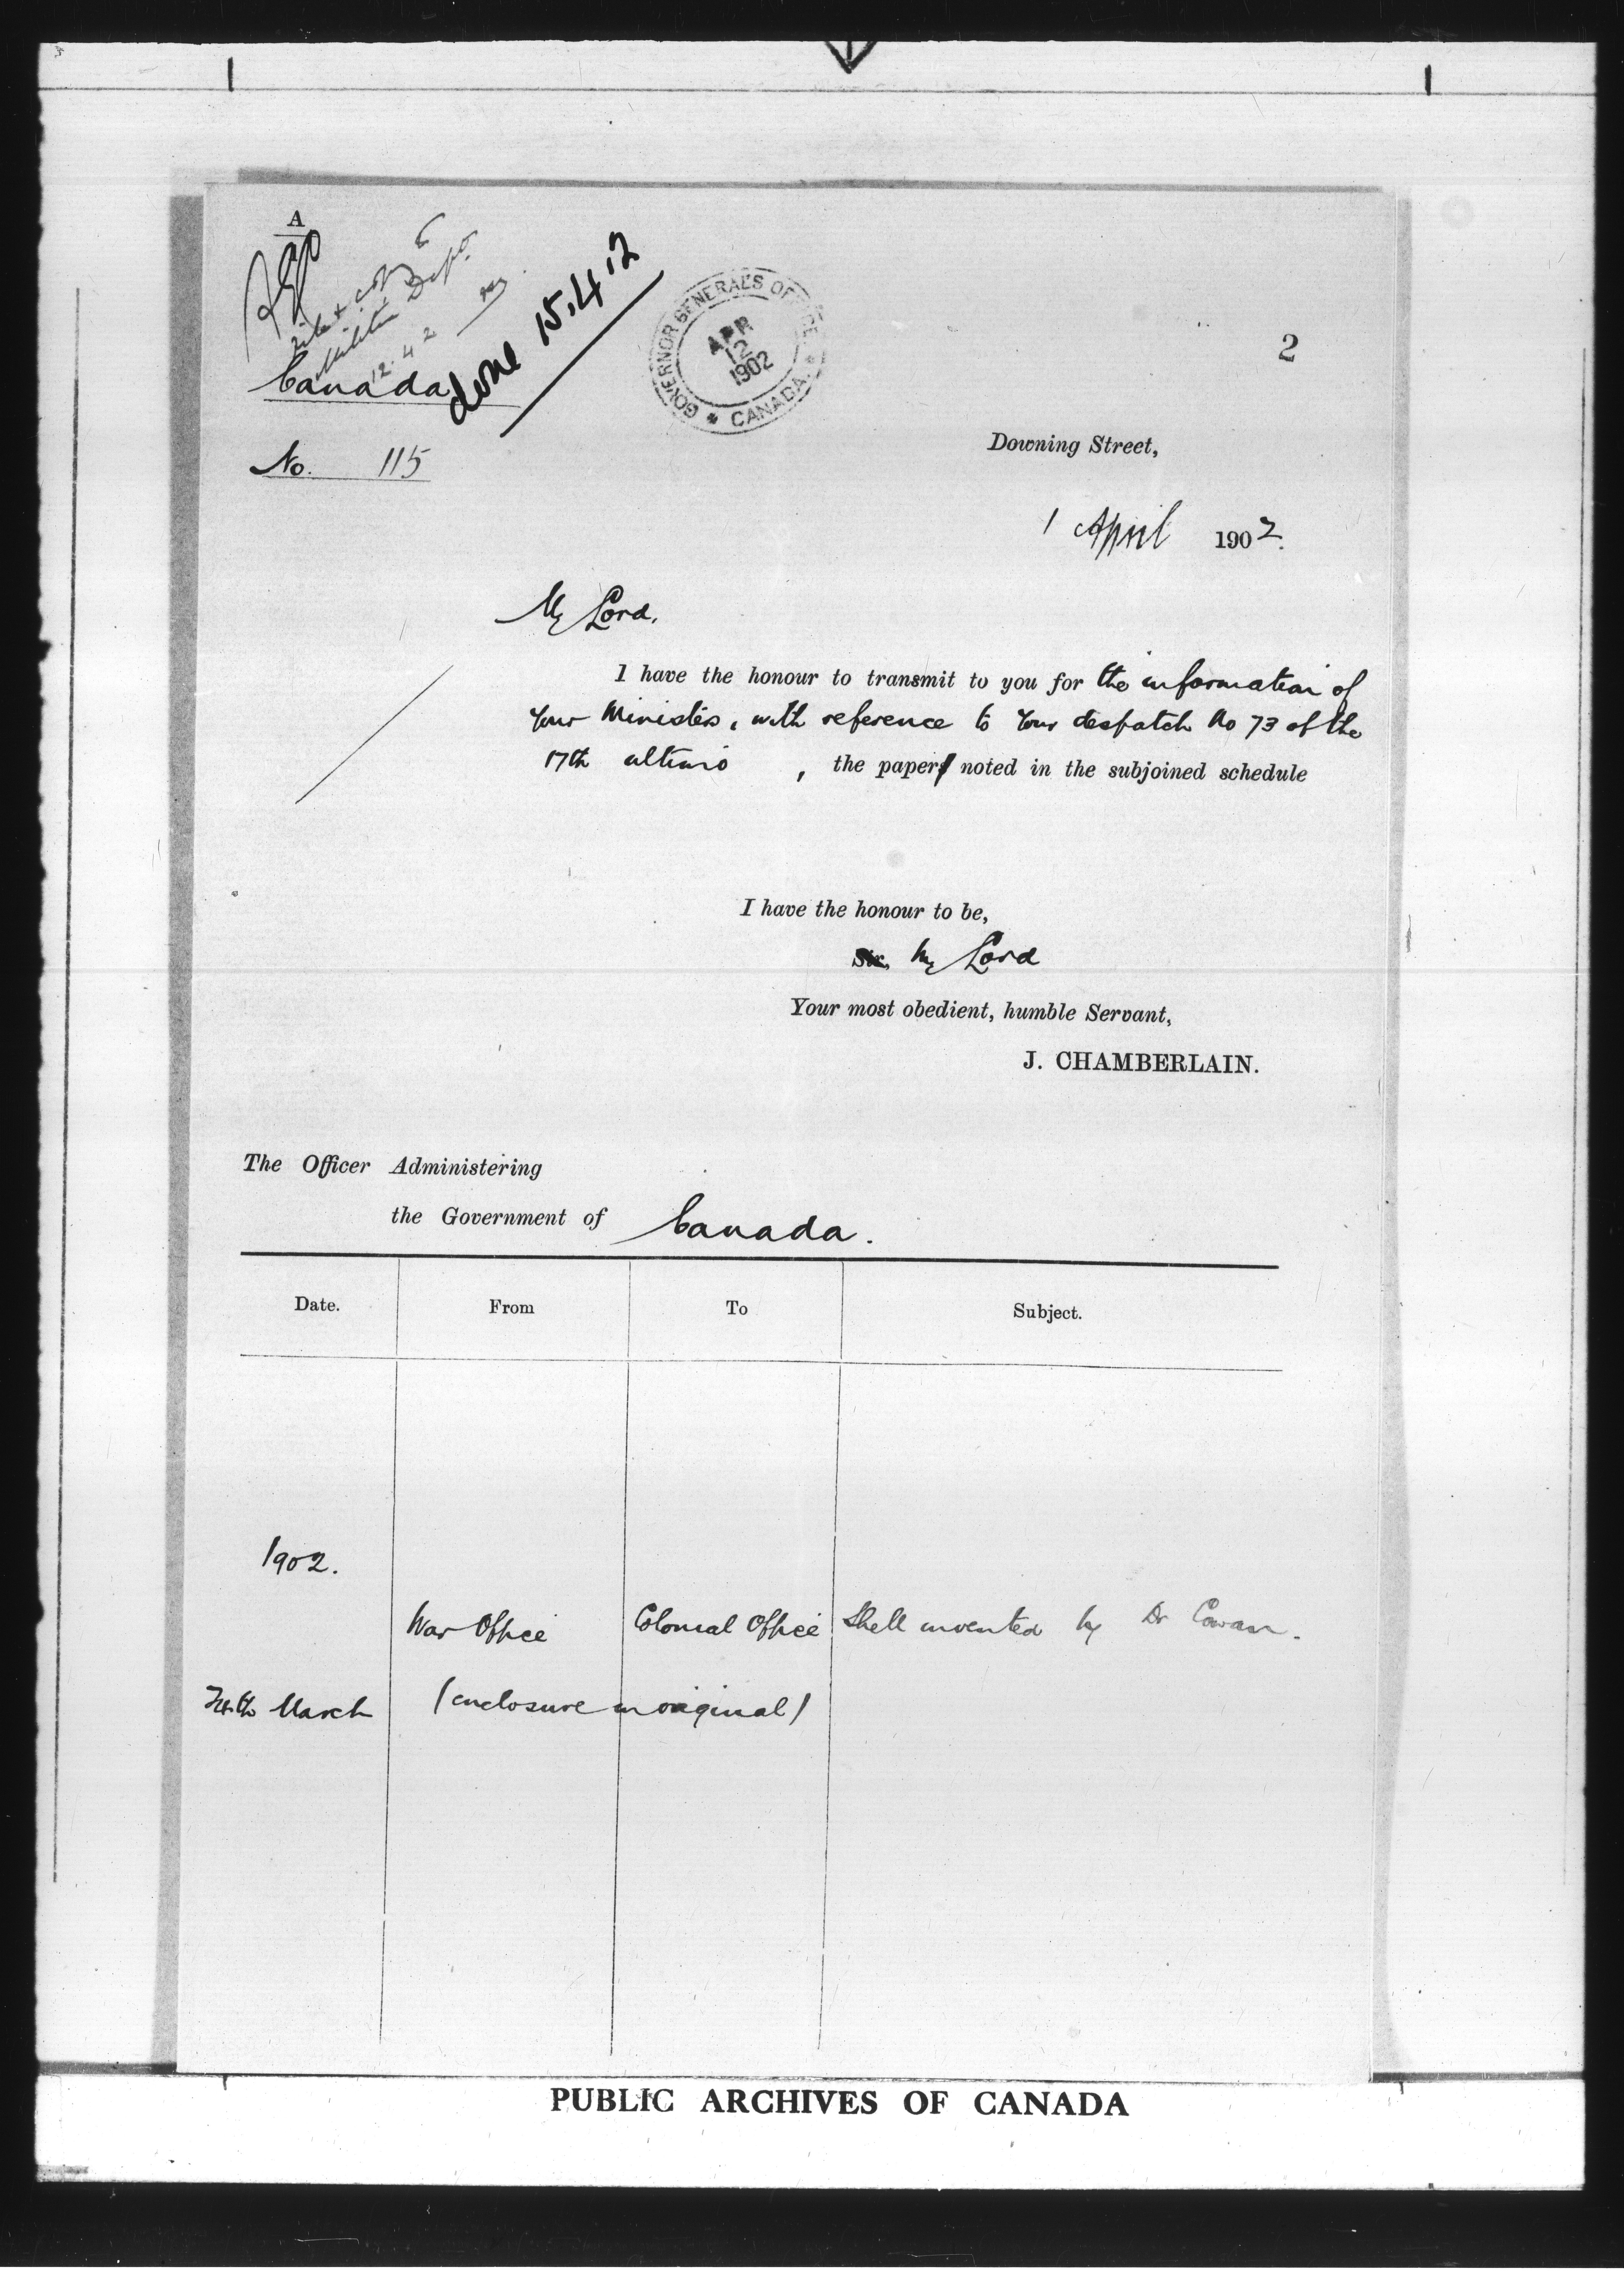 A
copy to
Militia Dept.
12.4.2
done 15.4.2
GOVERNOR GENERAL'S OFFICE
APR
12
1902
* CANADA. *
2
Canada
No. 115
Downing Street,
1 April 1902.
My Lord,
I have the honour to transmit to you for the information of
Your Ministers, with reference to Your despatch No 73 of the
17th ultimo , the paper noted in the subjoined schedule
I have the honour to be,
Sir, My Lord
Your most obedient, humble Servant,
J. CHAMBERLAIN.
The Officer Administering
the Government of Canada.
Date. From To Subject.
1902.
War Office Colonial Office Shell invented by Dr Cowan.
March (enclosure in original)
PUBLIC ARCHIVES OF CANADA